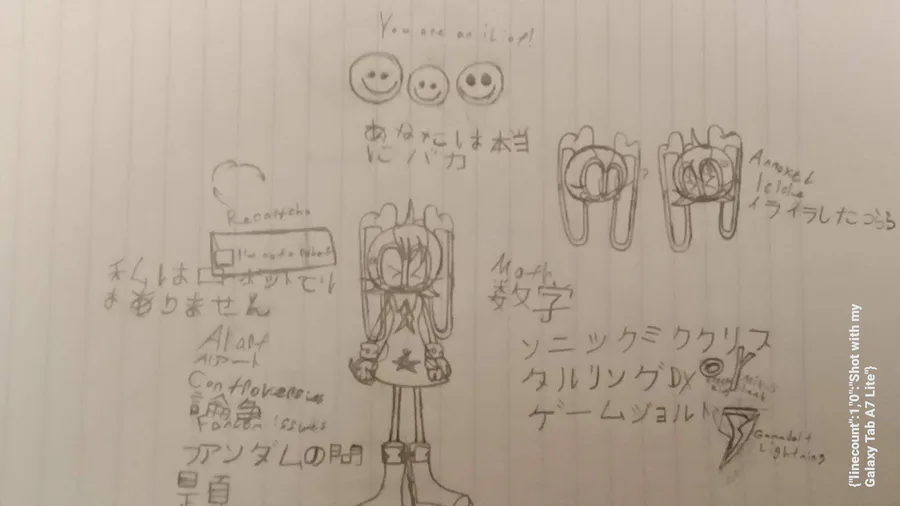 You are an idiot!
あなたは本当
にバカ
Recaptcha
I'm not a robot
私はロボットでは
ありません
AI art
AIアート
Controversies
論争
Fandom issues
ファンダムの問
題
Annoyed
Icicle
イライラしたつらら
Math
数字
ソニックミククリス
タルリングDX
ゲームジョルト
Miku's
Gamejolt
Lightning
{"linecount":1,"0":"Shot with my
Galaxy Tab A7 Lite"}